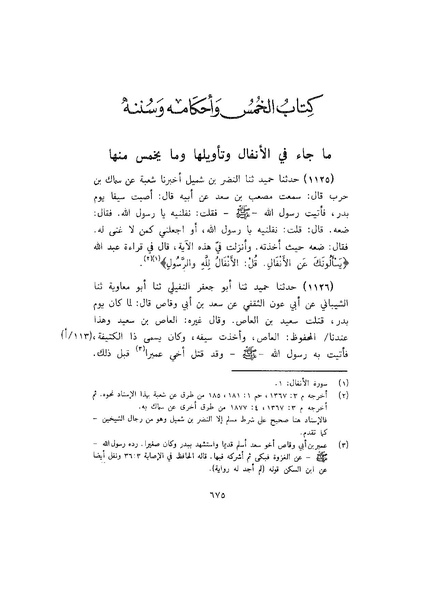 كِتَابُ الخُمُسِ وَأحكَامِه وَسُنَنِهُ
ما جاء في الأنفال وتأويلها وما يخمس منها
(١١٢٥) حدثنا حميد ثنا النضر بن شميل أخبرنا شعبة عن سماك بن
حرب قال: سمعت مصعب بن سعد عن أبيه قال: أصبت سيفا يوم
بدر، فأتيت رسول الله -ﷺ- فقلت: نفلنيه يا رسول الله. فقال:
ضعه. قال: قلت: نفلنيه يا رسول الله، أو اجعلني كمن لا غنى له.
فقال: ضعه حيث أخذته. وأنزلت في هذه الآية، قال في قراءة عبد الله
﴿يَسألُونَكَ عَنِ الأَنْفَالِ. قُلْ: الأَنْفَالُ لِلَّهِ والرَّسُولِ﴾(١)(٢).
(١١٢٦) حدثنا حميد ثنا أبو جعفر النفيلي ثنا أبو معاوية ثنا
الشيباني عن أبي عون الثقفي عن سعد بن أبي وقاص قال: لما كان يوم
بدر، قتلت سعيد بن العاص. وقال غيره: العاص بن سعيد وهذا
عندنا/ المحفوظ: العاص، وأخذت سيفه، وكان يسمى ذا الكتيفة، (١١٣/أ)
فأتيت به رسول الله -ﷺ- وقد قتل أخي عميرا(٣) قبل ذلك.
(١) سورة الأنفال: ١.
(٢) أخرجه م ٣: ١٣٦٧، حم ١: ١٨١، ١٨٥ من طرق عن شعبة بهذا الإسناد نحوه. ثم
أخرجه م ٣: ١٣٦٧، ٤: ١٨٧٧ من طرق أخرى عن سماك به.
فالإسناد هنا صحيح على شرط مسلم إلا النضر بن شميل وهو من رجال الشيخين -
كما تقدم.
(٣) عمير بن أبي وقاص أخو سعد أسلم قديما واستشهد ببدر وكان صغيرا. رده رسول الله -
ﷺ - عن الغزوة فبكى ثم أشركه فيها. قاله الحافظ في الإصابة ٣: ٣٦ ونقل أيضا
عن ابن السكن قوله (لم أجد له رواية).
٦٧٥